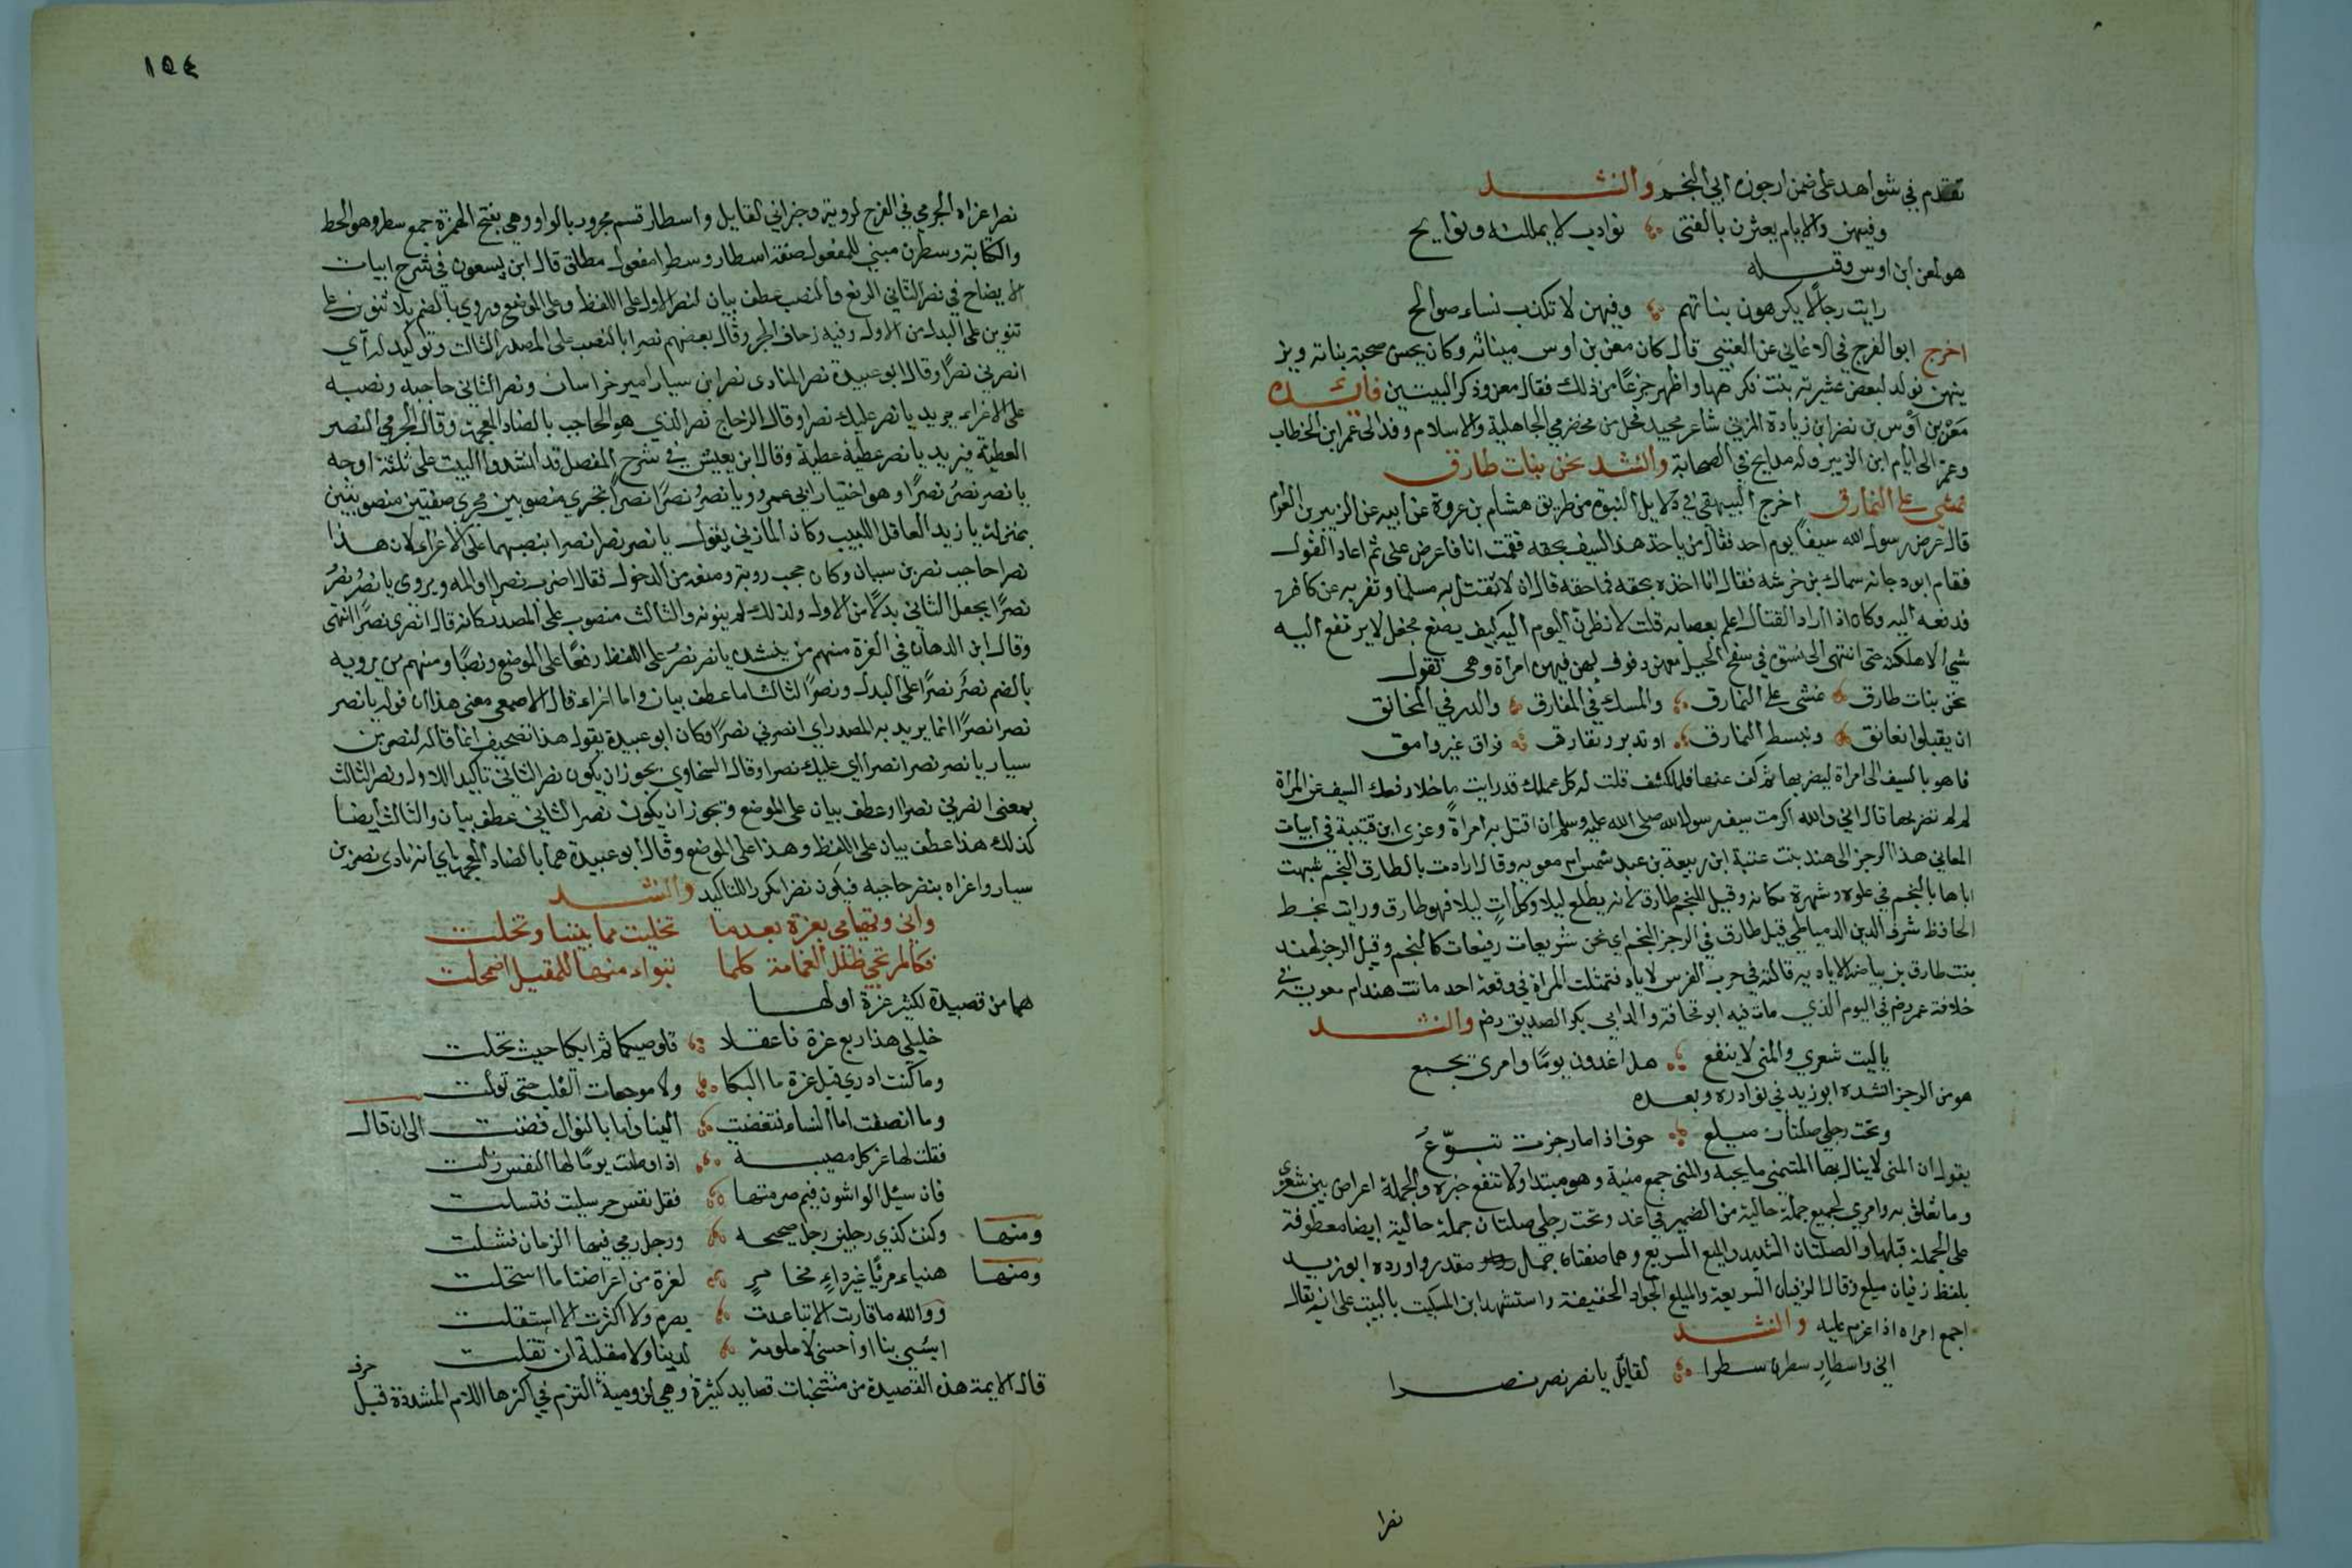 تقدم في شواهد على ضمن ارجوزة ابي النجم وانشد
وفيهن والايام يعثرن بالفتى نوادب لا يمللنه ونوايح
هو لمعن ابن اوس وقبله
رايت رجالًا يكرهون بناتهم وفيهن لا تكذب نساء صوالح
اخرج ابو الفرج في الاغاني عن العتبي قال كان معن بن اوس ميناثه وكان يحسن صحبة بناته ويز
ينهن فولد لبعض عشيرته بنت فكرهها واظهر جزعًا من ذلك فقال معن وذكر البيتين فايدة
معن بن أوس بن نصر ابن زيادة المزني شاعر مجيد فحل من مخضرمي الجاهلية والاسلام وفد الى عمر ابن الخطاب
وعمر الى ايام ابن الزبير وله مدايح في الصحابة وانشد نحن بنات طارق
نمشي على النمارق اخرج البيهقي في دلايل النبوة من طريق هشام بن عروة عن ابيه عن الزبير بن العوام
قال عرض رسول الله سيفًا يوم احد فقال من ياخذ هذا السيف بحقه فقمت انا فاعرض عني ثم اعاد القول
فقام ابو دجانه سماك بن خرشه فقال انا اخذه بحقه فما حقه قال ان لا تقتل به مسلما وتفر به عن كافر
فدفعه اليه وكان اذا اراد القتال اعلم بعصابه قلت لانظرن اليوم اليه كيف يصنع فجعل لا يرتفع اليه
شي الا هلكه حتى انتهى الى نسوة في سفح الجبيل معهن دفوف لهن فيهن امراة وهي تقول
نحن بنات طارق نمشي على النمارق والمسك في المفارق والدر في المخانق
ان يقبلوا نعانق ونبسط النمارق او تدبروا نفارق فراق غير وامق
فاهو بالسيف الى امراة ليضربها ثم كف عنها فلما كشف قلت له كل عملك قد رايت ما خلا رفعك السيف عن المراة
لم لم تضربها قال اني والله اكرمت سيف رسول الله صلى الله عليه وسلم ان اقتل به امراة وعزى ابن قتيبة في ابيات
المعاني هذا الرجز الى هند بنت عتبة ابن ربيعة بن عبد شمس ام معويه وقال ارادت بالطارق النجم شبهت
اباها بالنجم في علوه وشهرة مكانه وقيل للنجم طارق لانه يطلع ليلا وكل اتٍ ليلا فهو طارق ورايت بخط
الحافظ شرف الدين الدمياطي قيل طارق في الرجز النجم اي نحن شريعات رفيعات كالنجم وقيل الرجز لهند
بنت طارق بن بياضه الاياديه قالته في حرب الفرس لاياد فتمثلت المراة في وقعة احد ماتت هند ام معوية في
خلافة عمر رضي في اليوم الذي مات فيه ابو قحافة والد ابي بكر الصديق رضم وانشد
ياليت شعري والمنى لا ينفع هل اغدون يومًا وامري مجمع
هو من الرجز انشده ابو زيد في نوادره وبعده
وتحت رجلي صلتان ميلع حرف اذا ما زجرت تبوّعُ
يقول ان المنى لا ينال بها المتمنى ما يحبه والمنى جمع منية وهو مبتدا ولا تنفع خبره والجملة اعراض بين شعري
وما تعلق به وامري لجميع جملة حالية من الضمير في اغد وتحت رجلي صلتان جملة حالية ايضا معطوفة
على الجملة قبلها والصلتان الشديد والميلع السريع وهما صفتان جمال مقدر واورده ابو زيد
بلفظ زفيان ميلع وقال الزفيان السريعة والميلع الجواد الخفيفة واستشهد ابن السكيت بالبيت على انه يقال
اجمع امراه اذا عزم عليه وانشد
اني واسطارٍ سطرن سطرا لقايل يا نصر نصر نصرا
نصرا
١٥٤
نصرا عزاه الجرمي في الفرخ لروبة وخبر اني لقايل واسطار قسم مجرور بالواو وهي بفتح الهمزة جمع سطر وهو الخط
والكتابة وسطرن مبني للمفعول صفة اسطار وسطرا مفعول مطلق قال ابن يسعون في شرح ابيات
الايضاح في نصر الثاني الرفع والنصب عطف بيان لنصر الاول على اللفظ وعلى الموضع وروي بالضم بلا تنوين على
تنوين على البدل من الاول وفيه زحاف الجر وقال بعضهم نصرا بالنصب على المصدر الثالث وتوكيد له اي
انصرني نصرًا وقال ابو عبيدة نصر المنادى نصر ابن سيار امير خراسان ونصر الثاني حاجبه ونصبه
على الاغراء يريد يا نصر عليك نصرا وقال الزجاج نصر الذي هو الحاجب بالضاد المعجمة وقال الجرمي النصر
العطية فيريد يا نصر عطية عطية وقال ابن يعيش في شرح المفصل قد انشدوا البيت على ثلثة اوجه
يا نصر نصرُ نصرًا وهو اختيار ابي عمرو ويا نصرُ نصرًا نصرًا بجري منصوبين مجرى صفتين منصوبتين
بمنزلة يا زيد العاقل اللبيب وكان المازني يقول يا نصر نصرا نصرا بنصبهما على الاغراء لان هذا
نصرا حاجب نصر بن سيان وكان حجب روبة ومنعه من الدخول فقال اضرب نصرا او المه ويروى يا نصرُ نصرُ
نصرًا بجعل الثاني بدلًا من الاول ولذلك لم ينونه والثالث منصوب على المصدر كانه قال انصر نصرًا انتهى
وقال ابن الدهان في الغرة منهم من ينشد يا نصر نصرٌ على اللفظ رفعًا على الموضع ونصبًا ومنهم من يرويه
بالضم نصرُ نصرًا على البدل ونصرًا الثالث اما عطف بيان واما اغراء قال الاصمعي معنى هذا ان قوله يا نصر
نصرا نصرًا انما يريد به المصدر اي انصرني نصرًا وكان ابو عبيدة يقول هذا تصحيف انما قال لنصر بن
سيار يا نصر نصرا نصرا اي عليك نصرا وقال السخاوي يجوز ان يكون نصر الثاني تاكيدا للاول ونصر الثالث
بمعنى انصرني نصرا او عطف بيان على الموضع ويجوز ان يكون نصر الثاني عطف بيان والثالث ايضا
كذلك هذا عطف بيان على اللفظ وهذا على الموضع وقال ابو عبيدة هما بالضاد المعجمة اي انه نادى نصر بن
سيار واغراه بنضر حاجبه فيكون نضرا مكررا للتاكيد وانشد
واني وتهيامي بعزة بعدما تخليت مما بيننا وتخلت
فكالمرتجي ظلل الغمامة كلما تبواء منها للمقيل اضمحلت
هما من قصيدة لكثير عزة اولها
خليلي هذا ربع عزة فاعقلا قلوصيكما ثم ابكيا حيث تخلت
وما كنت ادري قبل عزة ما البكا ولا موجعات القلب حتى تولت
وما انصفت اما النساء فبغضت الينا واما بالنوال فضنت الى ان قال
فقلت لها عز كل مصيبة اذا وطنت يومًا لها النفس ذلت
فان سيئل الواشون فيم صرمتها فقل نفس حر سليت فتسلت
ومنها وكنت كذي رجلين رجل صحيحه ورجل رمي فيها الزمان فشلت
ومنها هنياء مريًا غير داءٍ مخامرٍ لعزة من اعراضنا ما استحلت
ووالله ما قاربت الا تباعدت بصرم ولا اكثرت الا استقلت
ايسئي بنا او احسني لا ملومة لدينا ولا مقلية ان تقلت
قال الايمة هذه القصيدة من منتخبات قصايد كثيرة وهي لزومية التزم في اكثرها اللام المشددة قبل
حرف